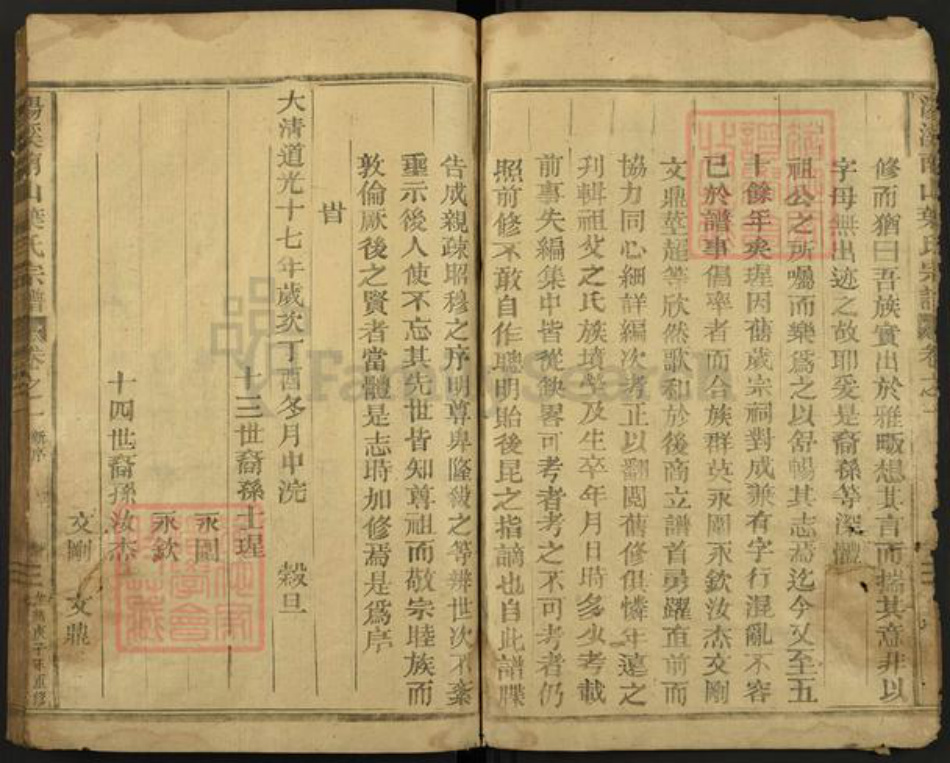 修而猶曰吾族實出於雅畈想其言而揣其意非以
字母無出迹之故耶爰是裔孫等深體
祖公之所囑而樂爲之以舒暢其志焉迄今又至五
十餘年矣瑆因舊歲宗祠對成兼有字行混亂不容
已於譜事倡率者而合族群英永闓永欽汝杰文剛
文鼎萃超等欣然歌和於後商立譜首勇躍直前而
協力同心細詳編次考正以翻閱舊修但憐年遠之
刋輯祖父之氏族墳塋及生卒年月日時多少考載
前事失編集中皆從缺畧可考者考之不可考者仍
照前修不敢自作聰明貽後昆之指謫也自此譜牒
告成親疎昭穆之序明尊卑隆殺之等辨世次不紊
垂示後人使不忘其先世皆知尊祖而敬宗睦族而
敦倫厥後之賢者當體是志時加修焉是爲序
旹
大清道光十七年歲次丁酉冬月中浣 穀旦
十三世裔孫士瑆
永闓
永欽
十四世裔孫汝杰
文剛 文鼎
湯溪南山葉氏宗譜 卷之一 新序